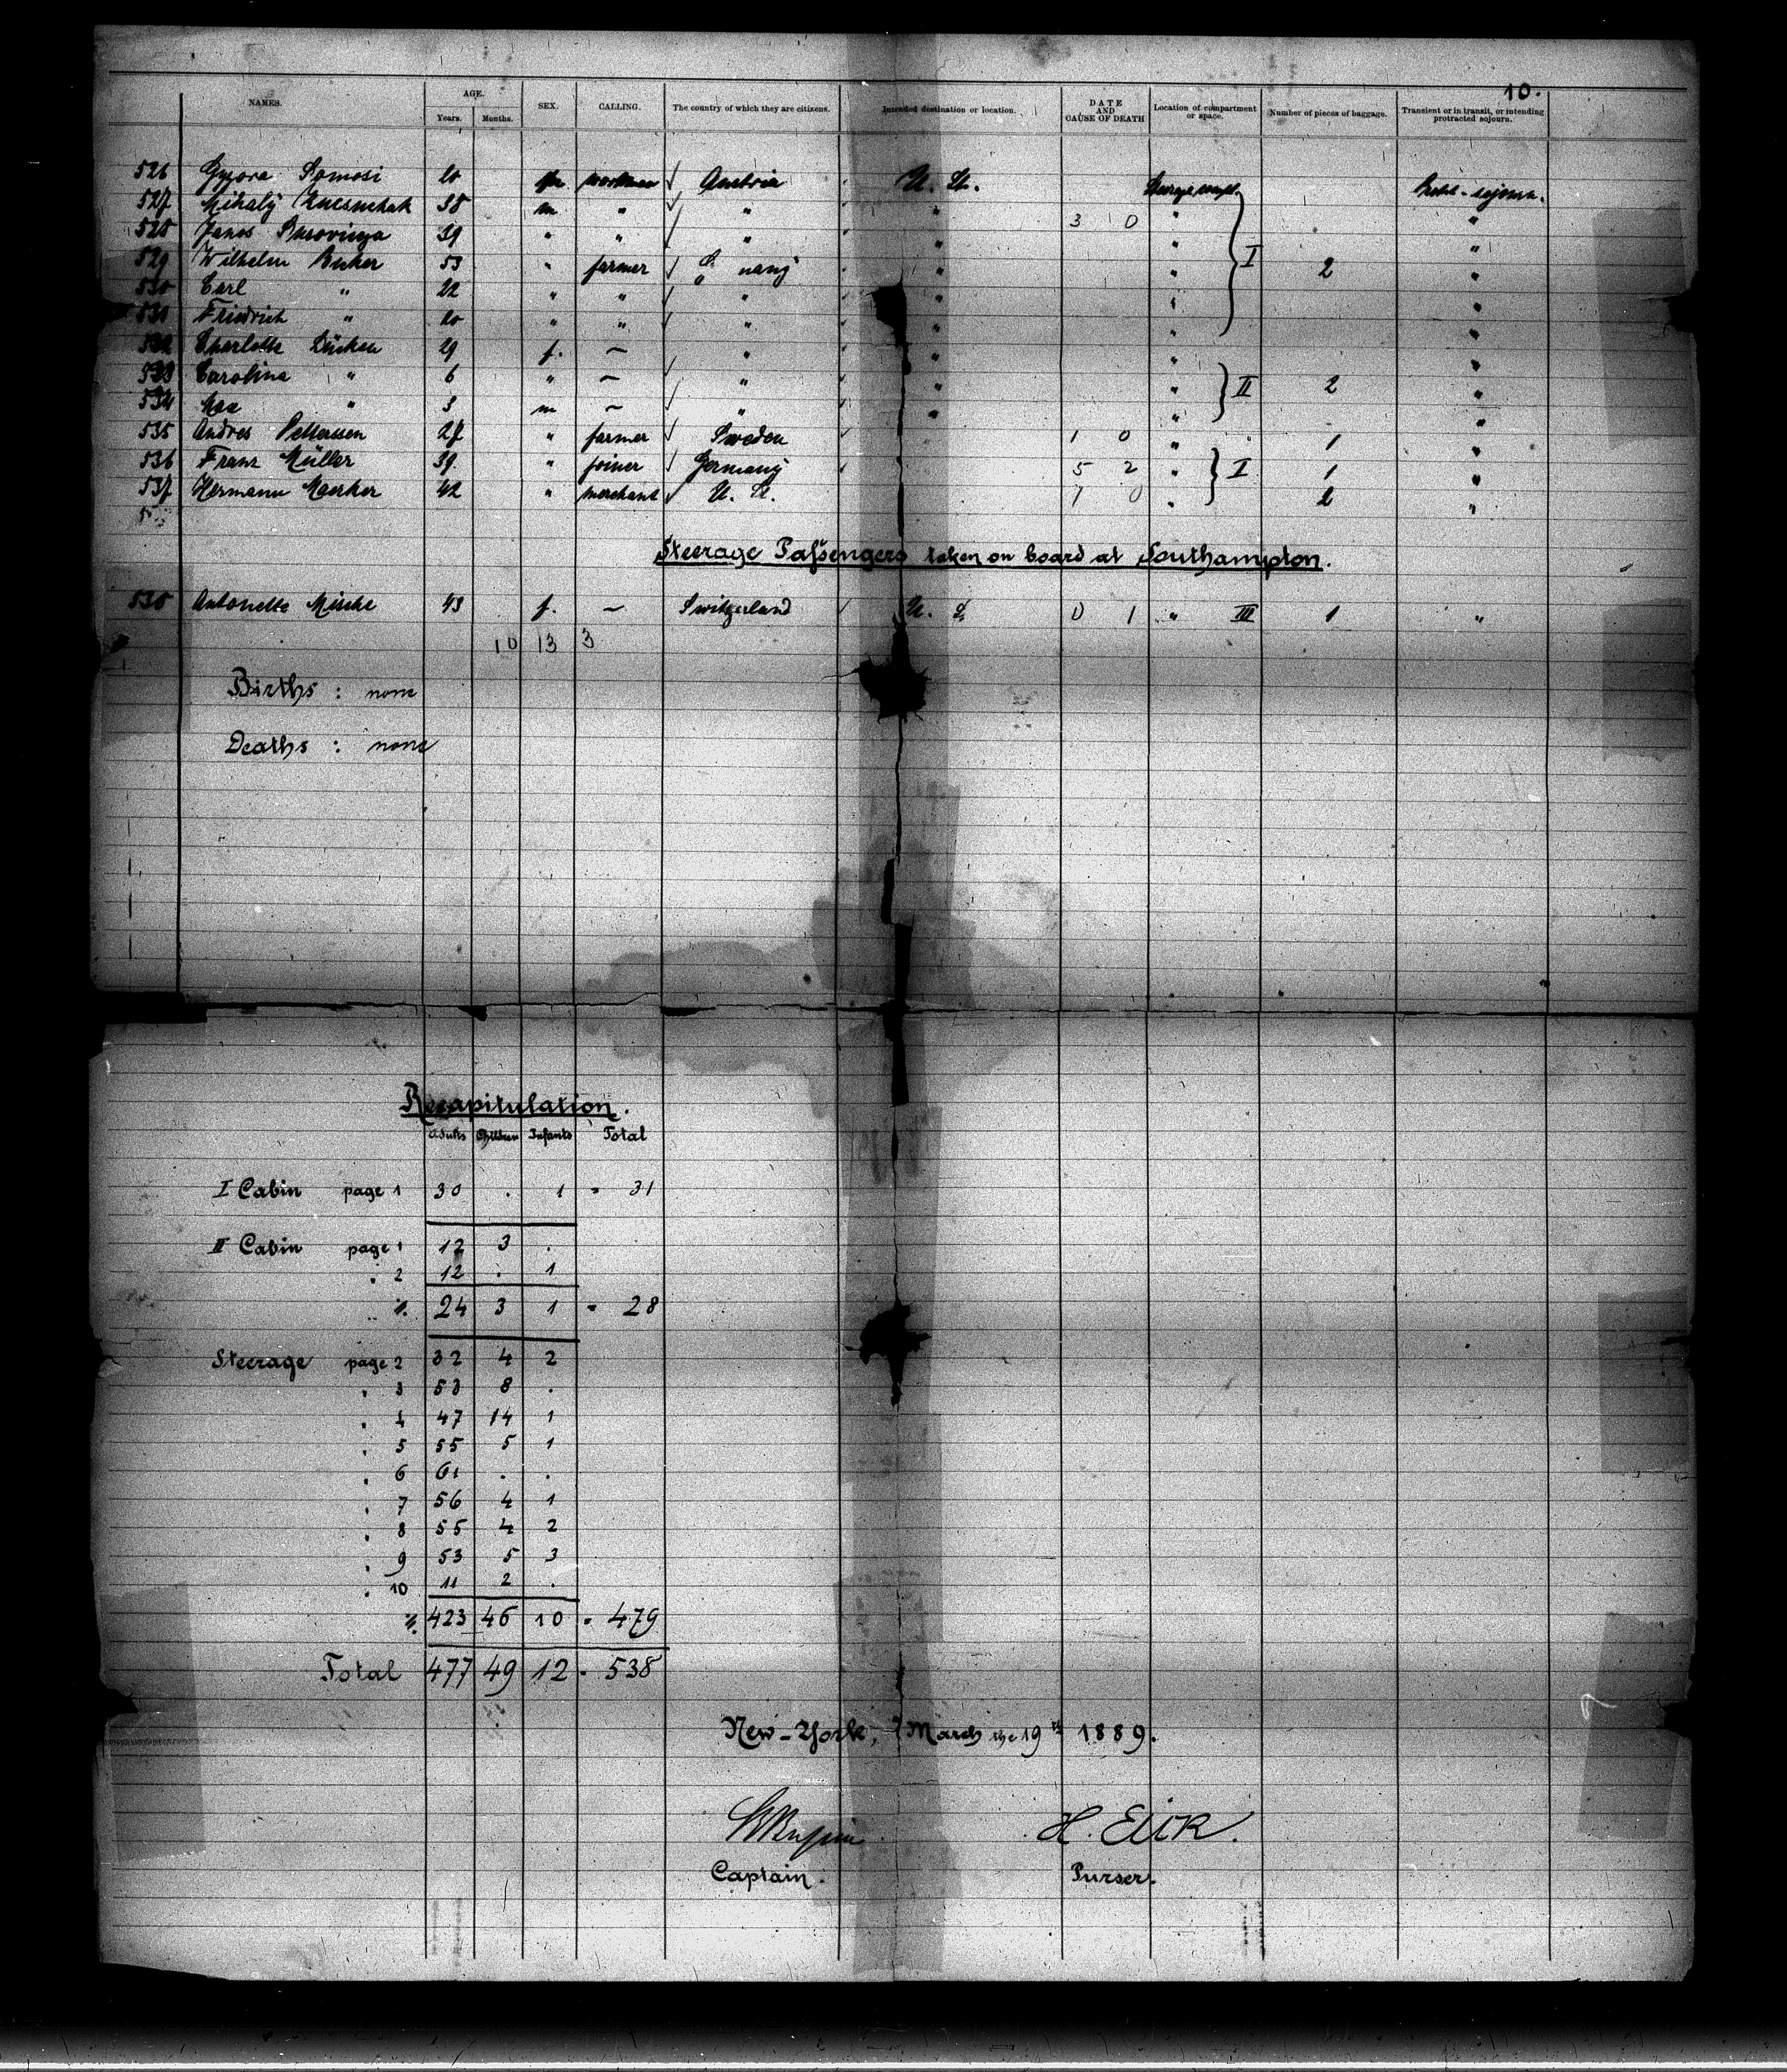 10.
NAMES. AGE. Years. Months. SEX. CALLING. The country of which they are citizens. Intended destination or location. DATE AND CAUSE OF DEATH Location of compartment or space. Number of pieces of baggage. Transient or in transit, or intending protracted sojourn.
526 20 workman Austria U. St.
527 Mihaly 38 m " " " " "
528 Janos 39 " " " 3 0 " " "
529 Wilhelm 53 " farmer " " I 2 "
530 Carl " 22 " " " " " "
531 Friedrich " 20 " " " " " "
532 Charlotte Lücken 29 f. – " " " "
533 Carolina " 6 " – " " " II 2 "
534 Max " 3 m – " " " "
535 Andres Petterssen 27 " farmer Sweden 1 0 " 1 "
536 Franz Müller 39 " joiner Germany 5 2 " I 1 "
537 Hermann Maerker 42 " merchant U. St. 1 0 " 2 "
Steerage Passengers taken on board at Southampton.
538 Antonette Mische 43 f. – Switzerland U. S. 0 1 " III 1 "
10 13 3
Births : none
Deaths : none
Recapitulation.
Adults Children Infants Total
I Cabin page 1 30 . 1 = 31
II Cabin page 1 12 3 .
" 2 12 . 1
%. 24 3 1 = 28
Steerage page 2 32 4 2
" 3 53 8 .
" 4 47 14 1
" 5 55 5 1
" 6 61 . .
" 7 56 4 1
" 8 55 4 2
" 9 53 5 3
" 10 11 2 .
%. 423 46 10 = 479
Total 477 49 12 = 538
New-York, March the 19th 1889.
H. Eick.
Captain. Purser.